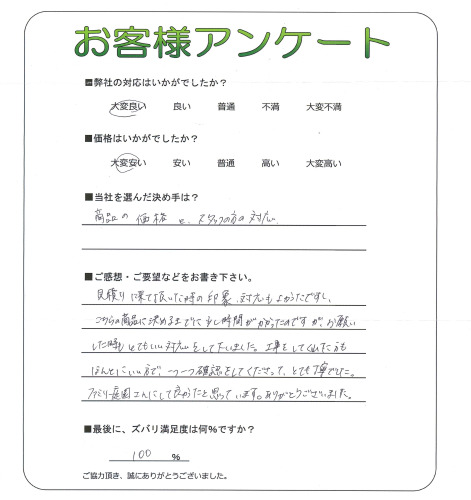 お客様アンケート
■弊社の対応はいかがでしたか？
大変良い 良い 普通 不満 大変不満
■価格はいかがでしたか？
大変安い 安い 普通 高い 大変高い
■当社を選んだ決め手は？
商品の 価格 と、スタッフの方の対応。
■ご感想・ご要望などをお書き下さい。
見積りに来て頂いた時の印象、対応もよかったですし、
こちらの商品に決めるまでに少し時間がかかったのですが、お願い
した時もとてもいい対応をして下さいました。工事をしてくれた方も
ほんとにいい方で、一つ一つ確認をしてくださって、とても丁寧でした。
ファミリー庭園さんにして良かったと思っています。ありがとうございました。
■最後に、ズバリ満足度は何％ですか？
100 ％
ご協力頂き、誠にありがとうございました。